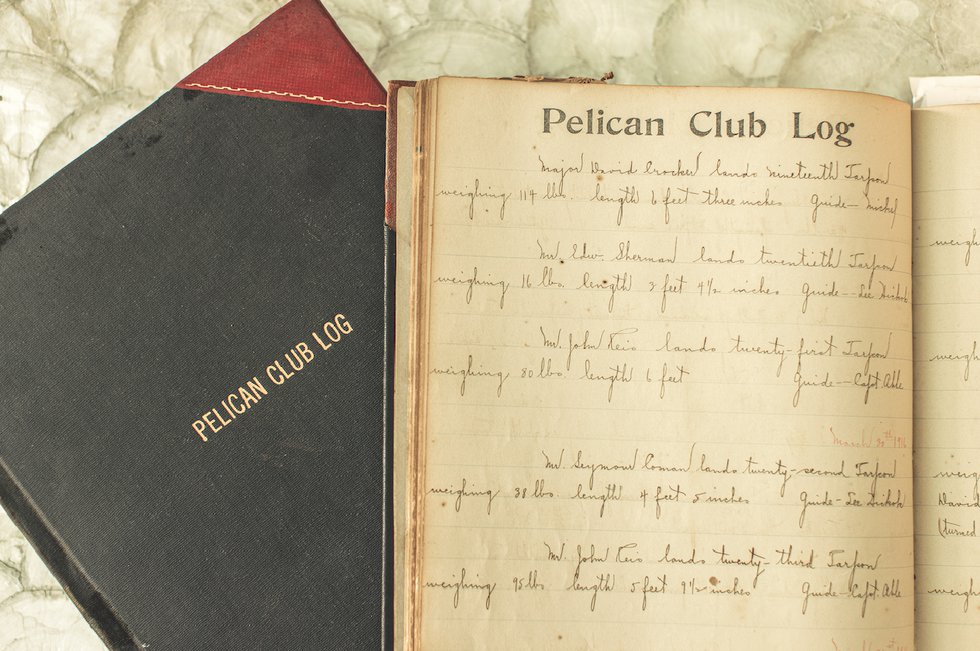 PELICAN CLUB LOG
Pelican Club Log
Major David Crocker lands nineteenth Tarpon
weighing 114 lbs. length 6 feet three inches Guide-- Michel
Mr. Edw. Sherman lands twentieth Tarpon
weighing 16 lbs. length 3 feet 4½ inches Guide--Lee Hickok
Mr. John Reis lands twenty-first Tarpon
weighing 80 lbs. length 6 feet Guide--Capt. Able
March 30th 1916
Mr. Seymour Coman lands twenty-second Tarpon
weighing 38 lbs. length 4 feet 5 inches Guide-Lee Hickok
Mr. John Reis lands twenty-third Tarpon
weighing 95 lbs length 5 feet 9½ inches Guide-Capt. Able
weigh
weigh
weig
David
(turned
weigh